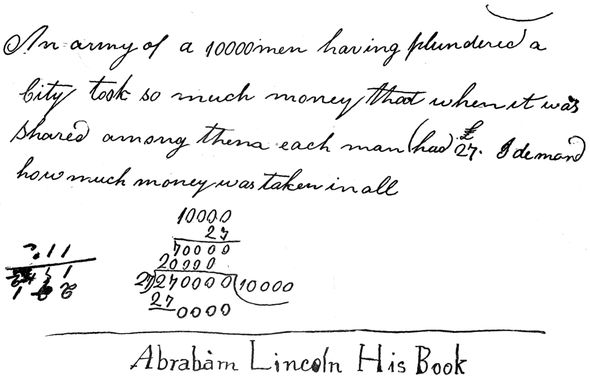 An army of a 10000 men having plundered a
City took so much money that when it was
shared among them each man had £
27. I demand
how much money was taken in all
10000
27
70000
20000
27)270000(10000
27
0000
Abraham Lincoln His Book